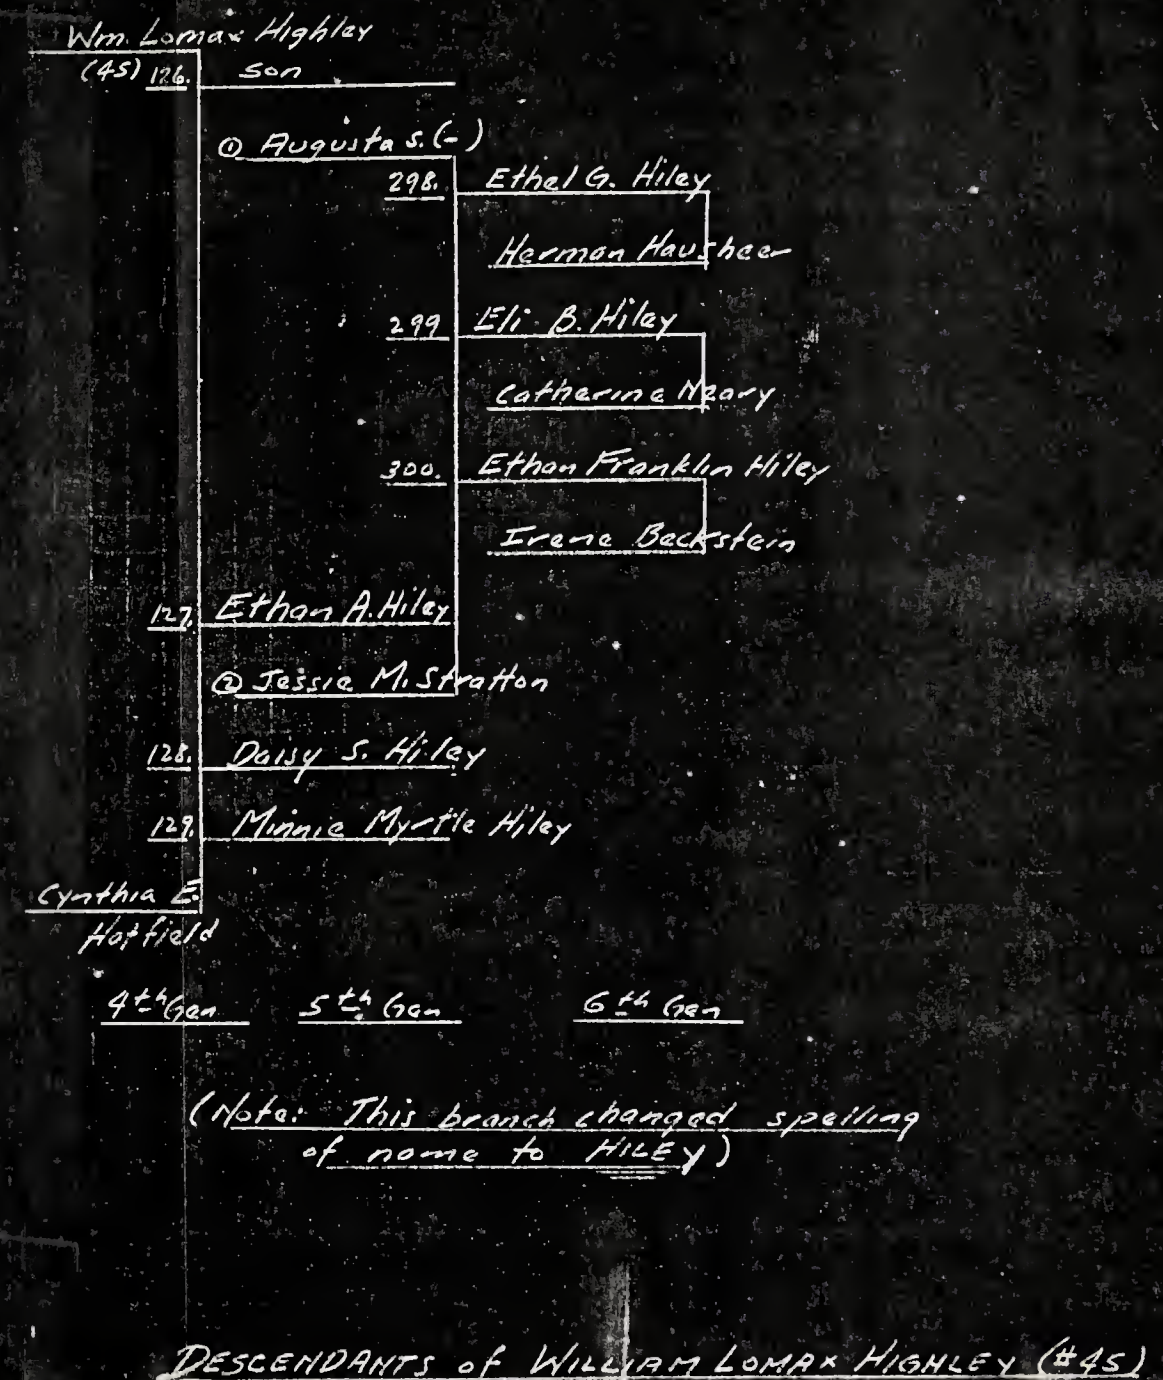 Wm. Lomax Highley
(45) 126. son
① Augusta S. (-)
298. Ethel G. Hiley
Herman Hausheer
299 Eli B. Hiley
Catherine Neary
300. Ethan Franklin Hiley
Irene Beckstein
127. Ethan A. Hiley
② Jessie M. Stratton
128. Daisy S. Hiley
129. Minnie Myrtle Hiley
Cynthia E.
Hatfield
4th Gen 5th Gen 6th Gen
(Note: This branch changed spelling
of name to HILEY)
DESCENDANTS of WILLIAM LOMAX HIGHLEY (#45)